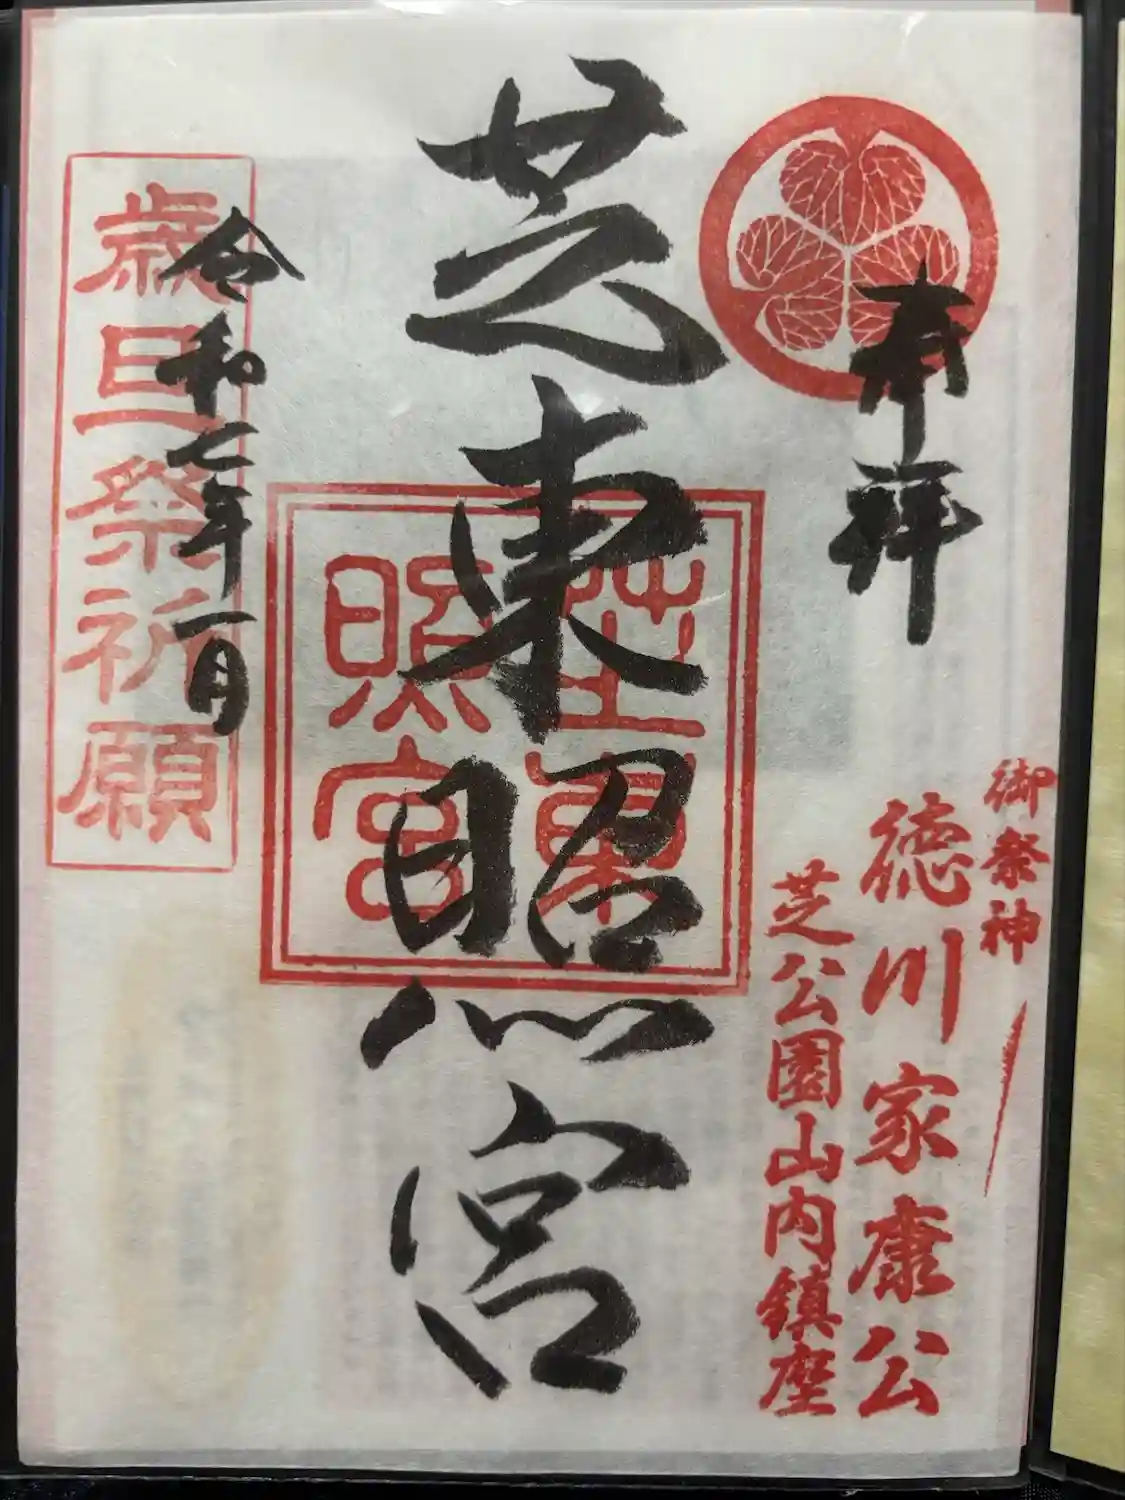 奉拝
御祭神
徳川家康公
芝公園山内鎮座
芝東照宮
芝東
照宮
令和七年一月
歳旦祭祈願